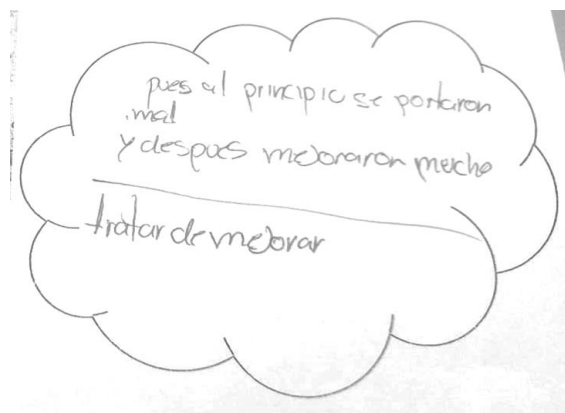 pues al principio se portaron
mal
y despues mejoraron mucho
tratar de mejorar